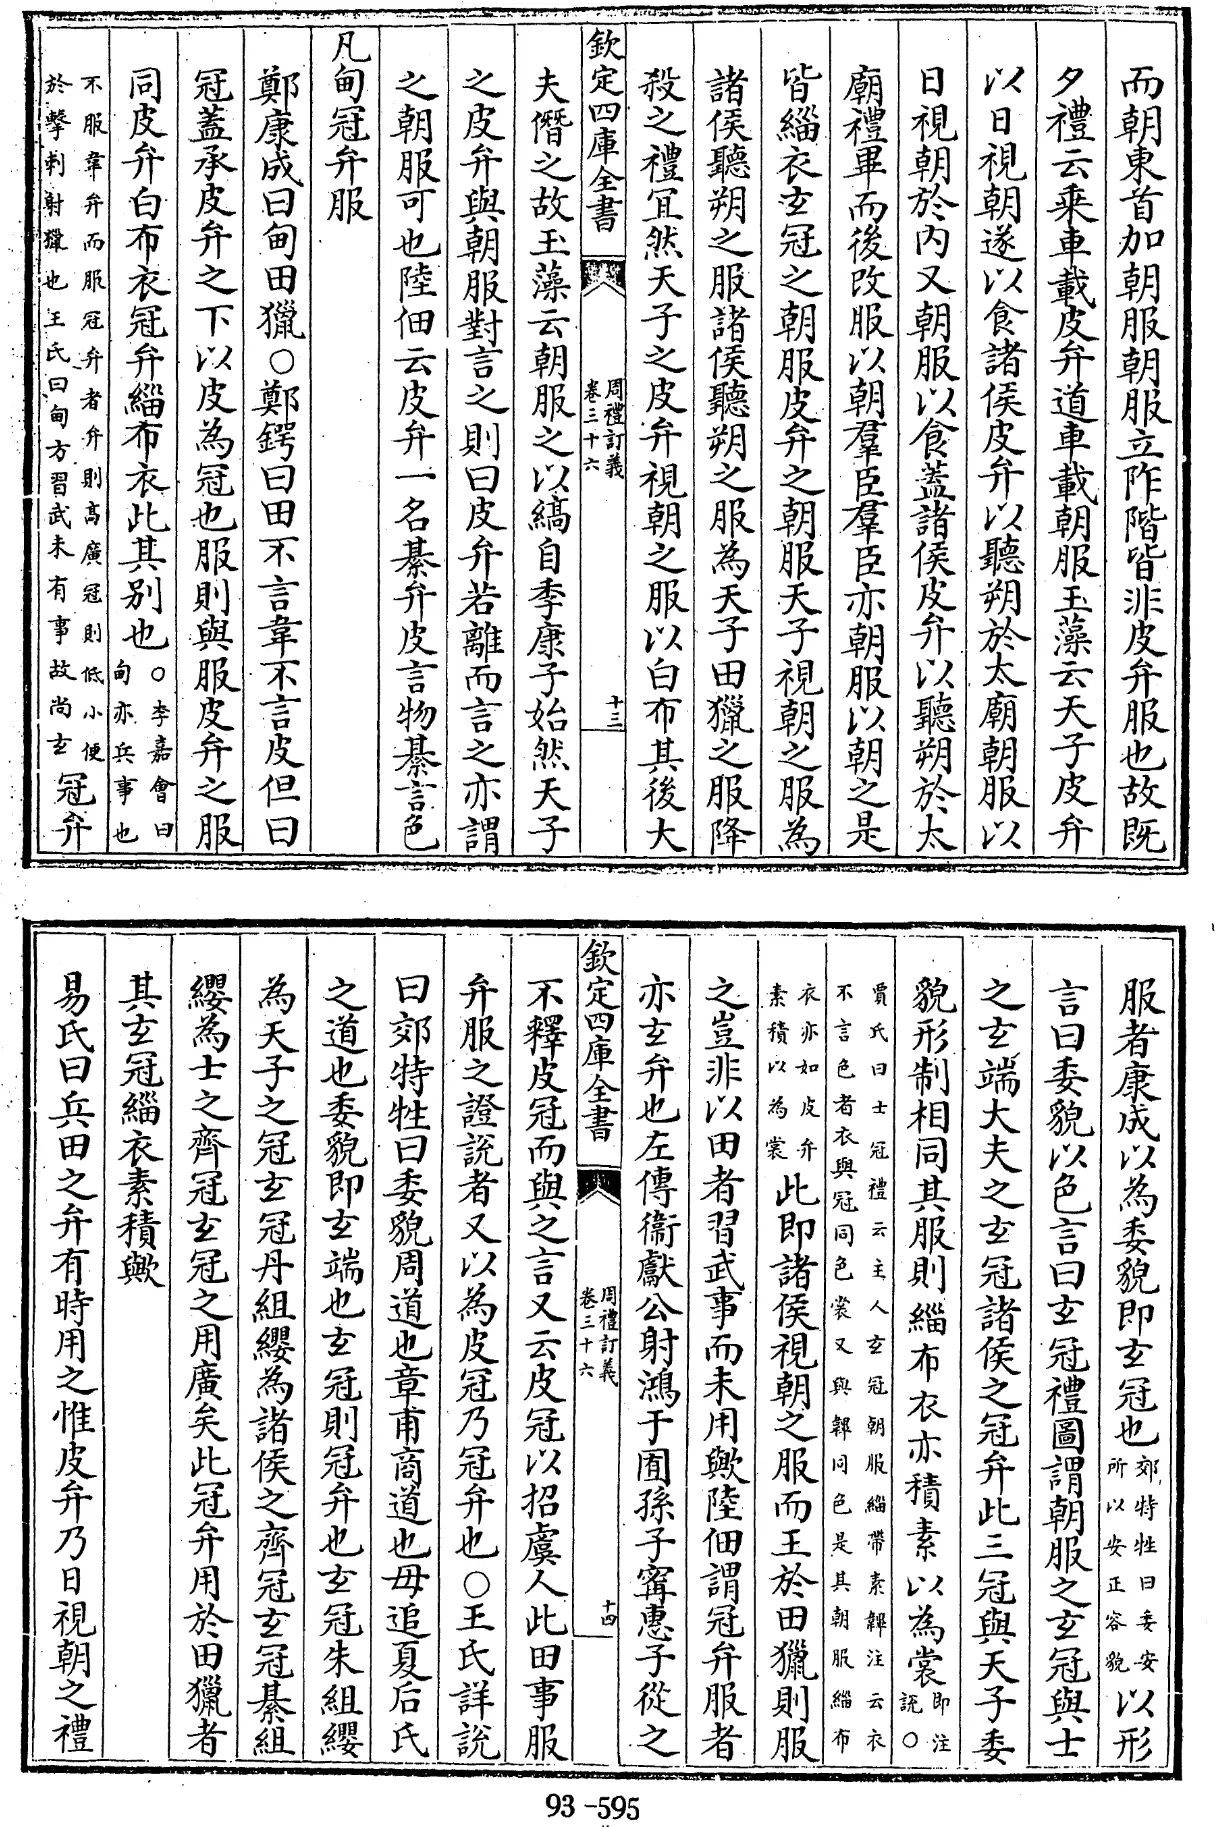 而朝東首加朝服朝服立阼階皆非皮弁服也故既
夕禮云乗車載皮弁道車載朝服玉藻云天子皮弁
以日視朝遂以食諸侯皮弁以聽朔於太廟朝服以
日視朝於内又朝服以食蓋諸侯皮弁以聽朔於太
廟禮畢而後改服以朝羣臣羣臣亦朝服以朝之是
皆緇衣𤣥冠之朝服皮弁之朝服天子視朝之服為
諸侯聽朔之服諸侯聽朔之服為天子田獵之服降
殺之禮冝然天子之皮弁視朝之服以白布其後大
欽定四庫全書
周禮訂義
卷三十六
十三
夫僭之故玉藻云朝服之以縞自季康子始然天子
之皮弁與朝服對言之則曰皮弁若離而言之亦謂
之朝服可也陸佃云皮弁一名綦弁皮言物綦言色
凡甸冠弁服
鄭康成曰甸田獵○鄭鍔曰田不言韋不言皮但曰
冠蓋承皮弁之下以皮為冠也服則與服皮弁之服
同皮弁白布衣冠弁緇布衣此其别也○李嘉會曰
甸亦兵事也
不服韋弁而服冠弁者弁則髙廣冠則低小便
於擊刺射獵也王氏曰甸方習武未有事故尚𤣥
冠弁
服者康成以為委貌即𤣥冠也郊特牲曰委安
所以安正容貌以形
言曰委貌以色言曰𤣥冠禮圖謂朝服之𤣥冠與士
之𤣥端大夫之𤣥冠諸侯之冠弁此三冠與天子委
貌形制相同其服則緇布衣亦積素以為裳即注
説○
賈氏曰士冠禮云主人𤣥冠朝服緇帶素韠注云衣
不言色者衣與冠同色裳又與韠同色是其朝服緇布
衣亦如皮弁
素積以為裳此即諸侯視朝之服而王於田獵則服
之豈非以田者習武事而未用歟陸佃謂冠弁服者
亦𤣥弁也左傳衞獻公射鴻于囿孫子甯惠子從之
欽定四庫全書
周禮訂義
卷三十六
十四
不釋皮冠而與之言又云皮冠以招虞人此田事服
弁服之證説者又以為皮冠乃冠弁也○王氏詳説
曰郊特牲曰委貌周道也章甫商道也毋追夏后氏
之道也委貌即𤣥端也𤣥冠則冠弁也𤣥冠朱組纓
為天子之冠𤣥冠丹組纓為諸侯之齊冠𤣥冠綦組
纓為士之齊冠𤣥冠之用廣矣此冠弁用於田獵者
其𤣥冠緇衣素積歟
易氏曰兵田之弁有時用之惟皮弁乃日視朝之禮
93-595